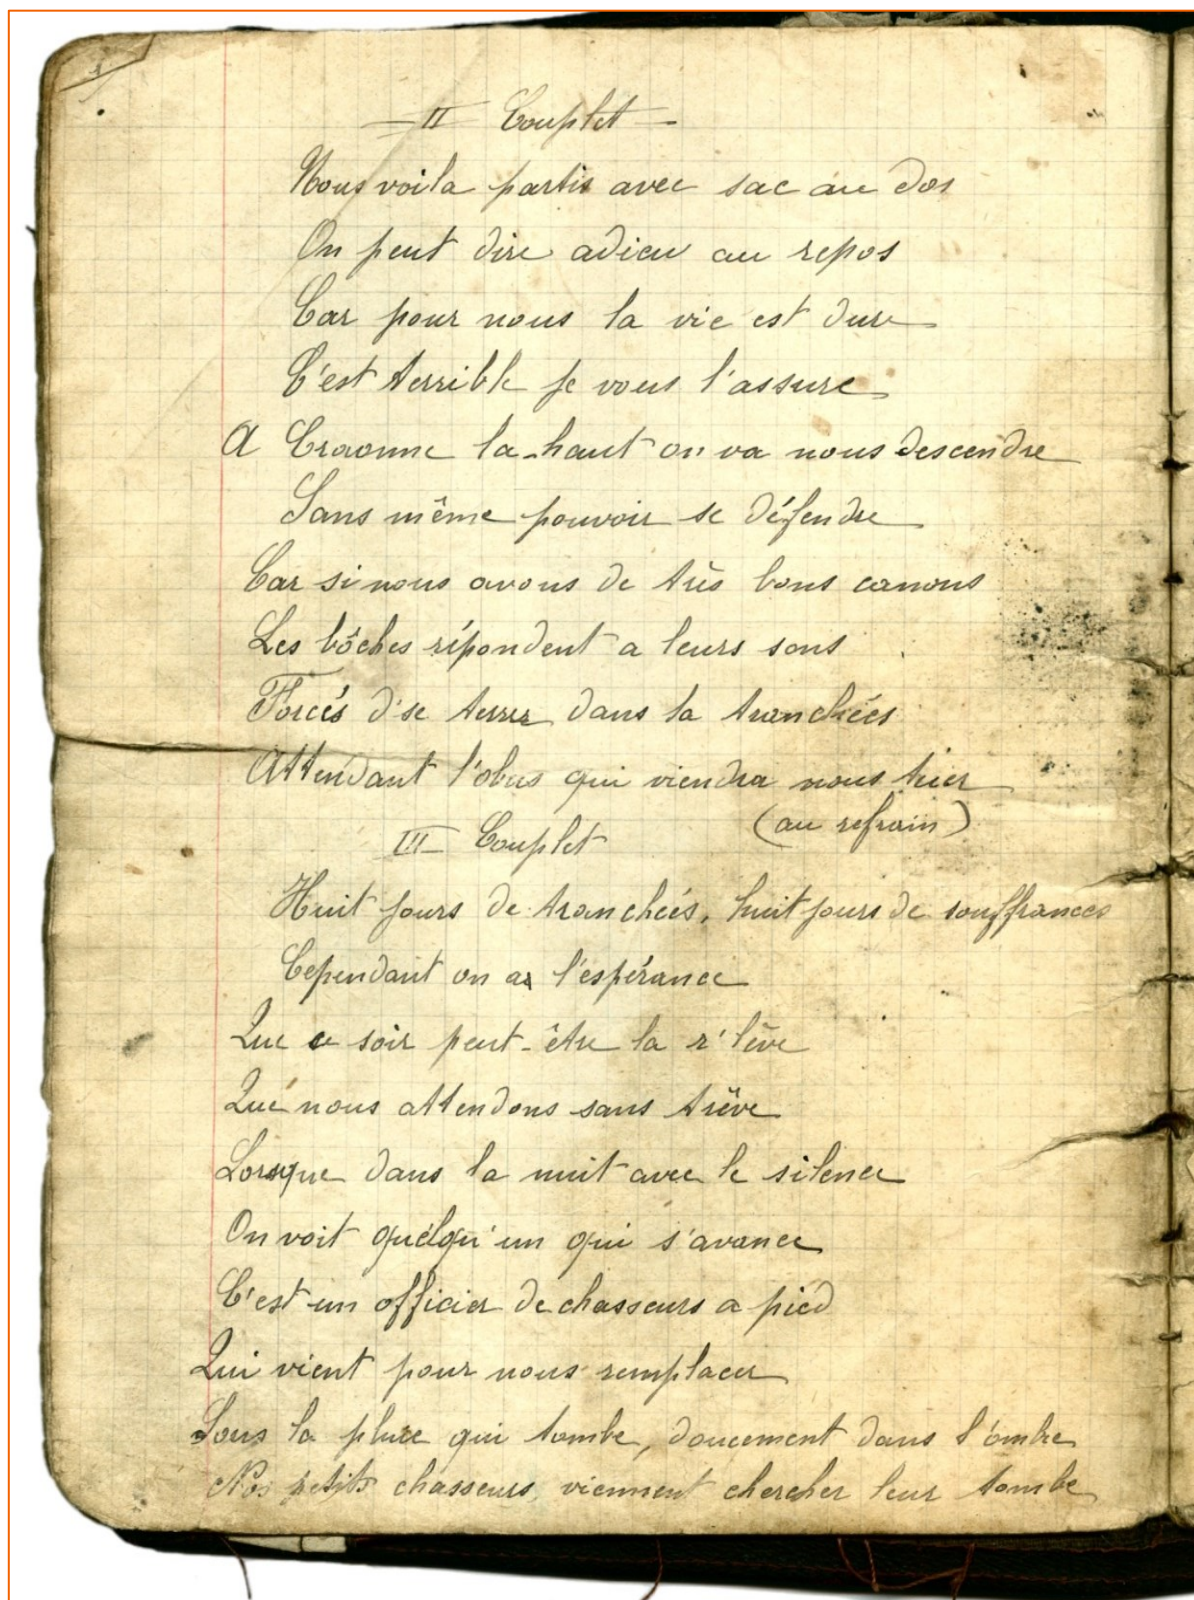 II Couplet
Nous voila partis avec sac au dos
On peut dire adieu au repos
Car pour nous la vie est dure
C'est terrible je vous l'assure
A Craonne la-haut on va nous descendre
Sans même pouvoir se défendre
Car si nous avons de très bons canons
Les bôches répondent a leurs sons
Forcés d'se terrer dans la tranchées
Attendant l'obus qui viendra nous tuer
(au refrain)
III Couplet
Huit jours de tranchées, huit jours de souffrances
Cependant on a l'espérance
Que ce soir peut-être la r'lève
Que nous attendons sans trève
Lorsque dans la nuit avec le silence
On voit quelqu'un qui s'avance
C'est un officier de chasseurs a pied
Qui vient pour nous remplacer
Sous la pluie qui tombe, doucement dans l'ombre
Nos petits chasseurs viennent chercher leur tombe